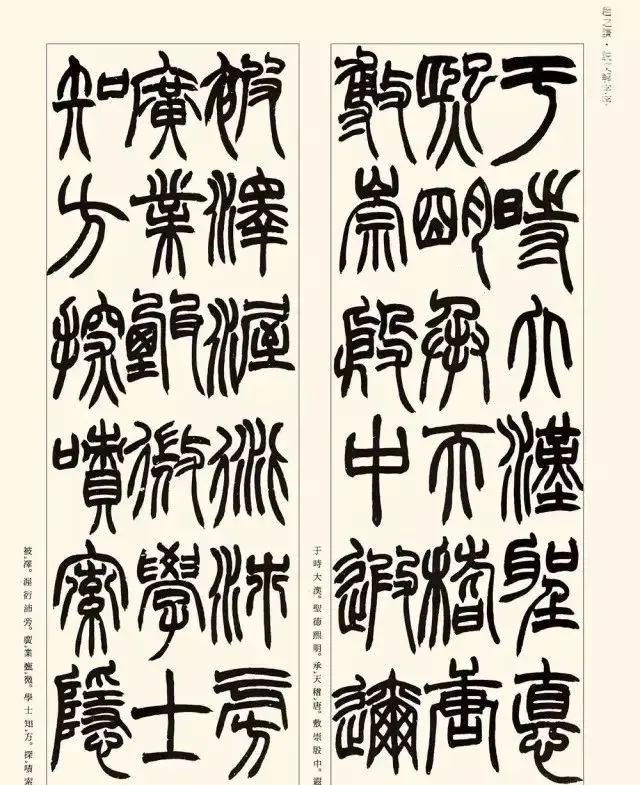 于時大漢聖悳
熙明承天稽唐
敷崇殷中遐邇
于時大漢。聖德熙明。承天稽唐。敷崇殷中。遐
被澤渥衍沛旁
廣業甄微學士
知方探嘖索隱
被澤。渥衍沛旁。廣業甄微。學士知方。探嘖索